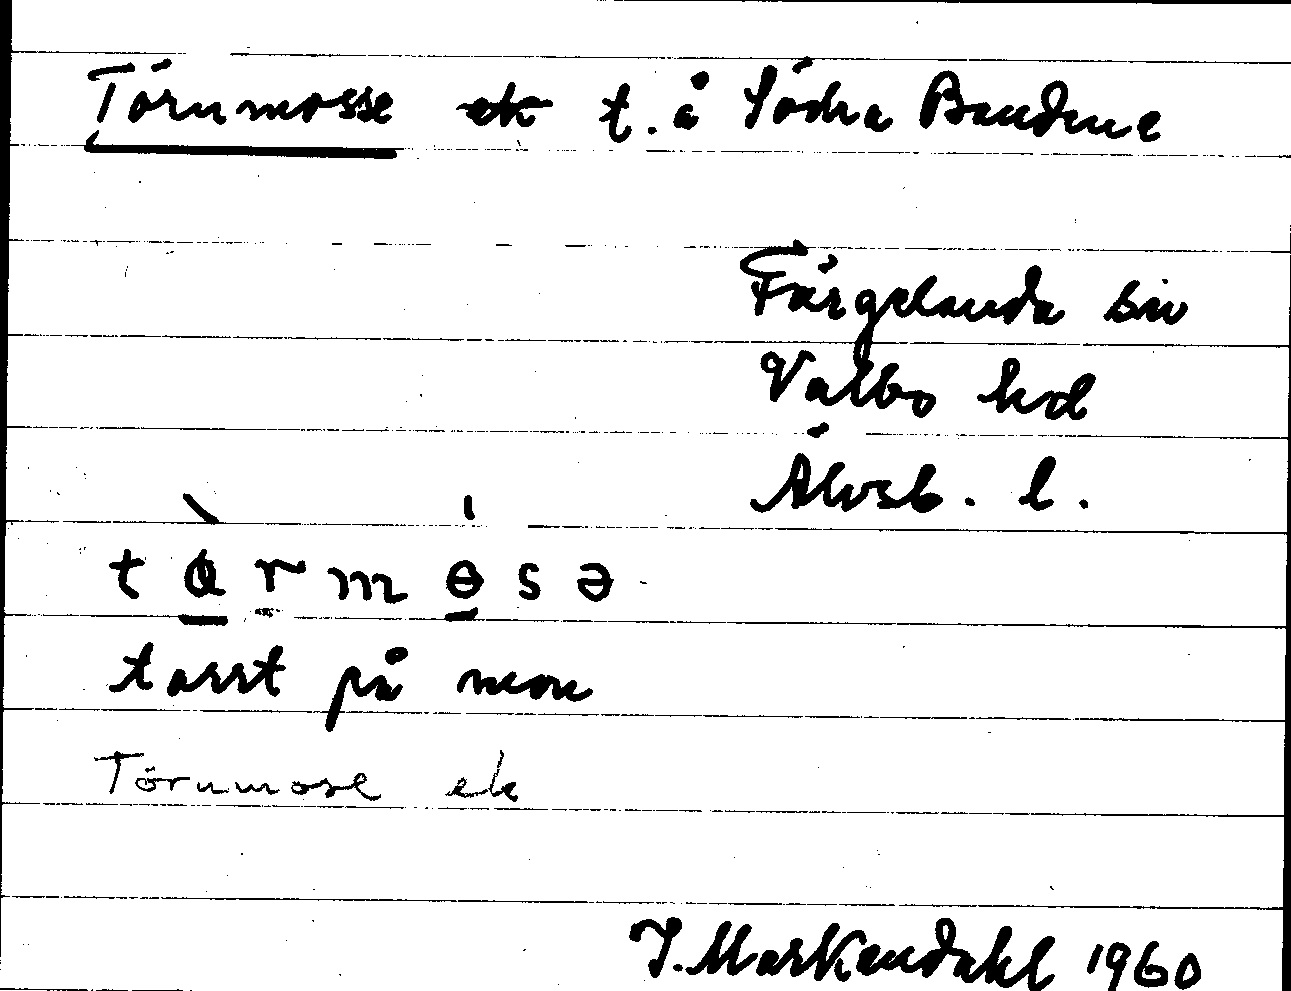 Törnmosse ek t. å Södra Bandene
Färgelanda sn
Valbo hd
Älvsb. l.
t ɑ̀ r m ɵ́ s ə
torrt på mon
Törnmose ek
J. Markendahl 1960